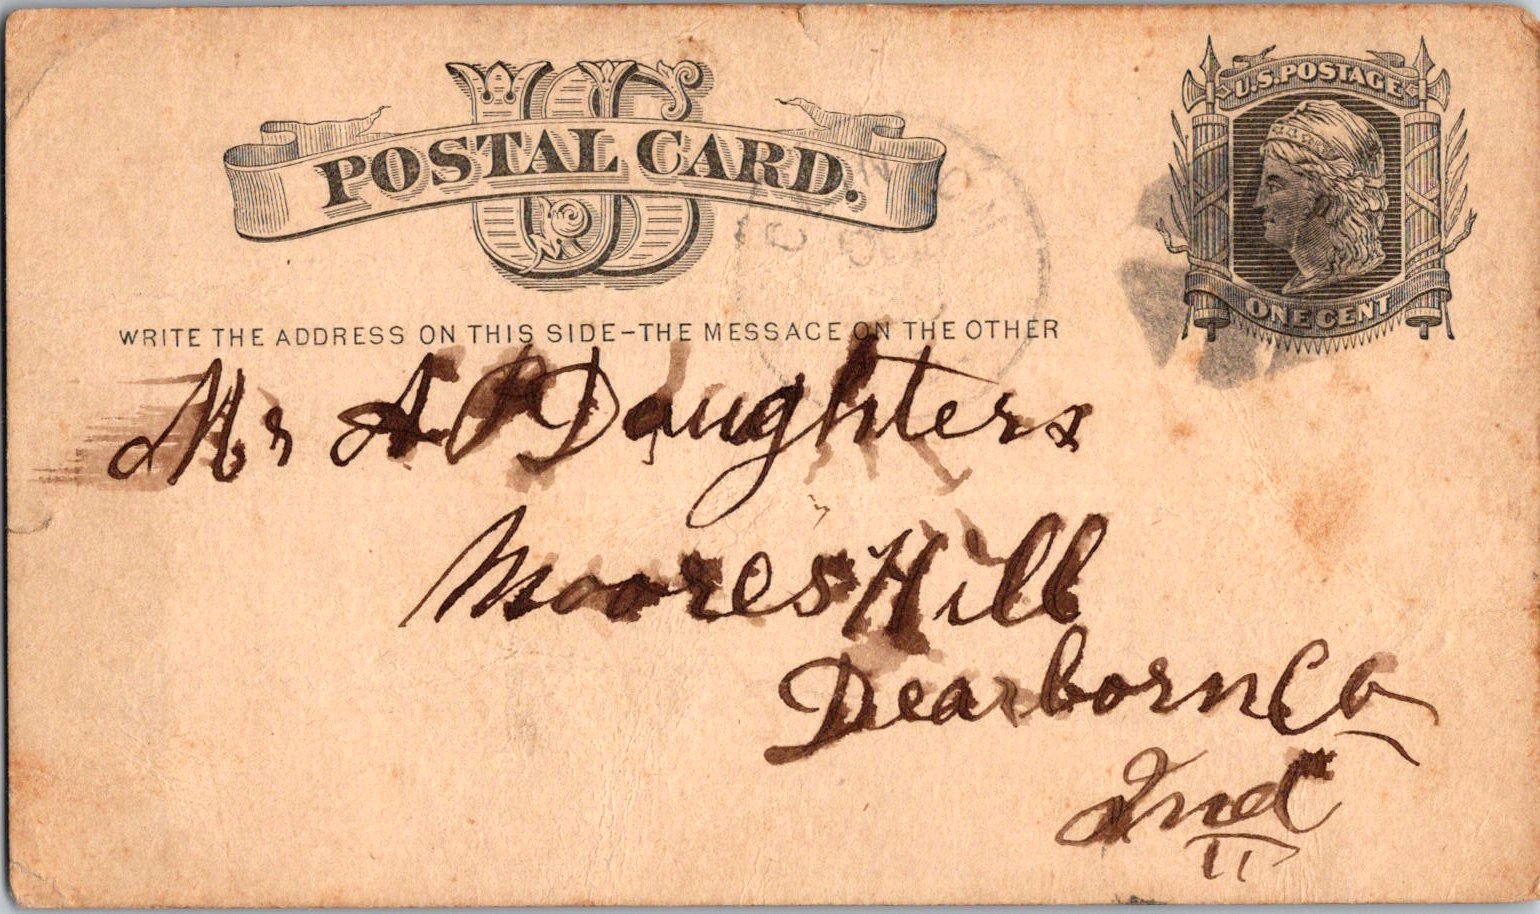 US
POSTAL CARD.
U.S. POSTAGE
ONE CENT
WRITE THE ADDRESS ON THIS SIDE–THE MESSAGE ON THE OTHER
Mr A P Daughters
Moores Hill
Dearborn Co
Ind